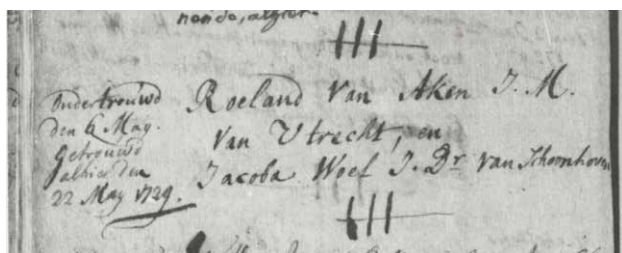 nondo, alhier.
Ondertrouwd
den 6 May.
Getrouwd
alhier den
22 May 1729.
Roeland Van Aken J. M.
Van Utrecht, en
Jacoba Woef J. Dr. van Schoonhoven